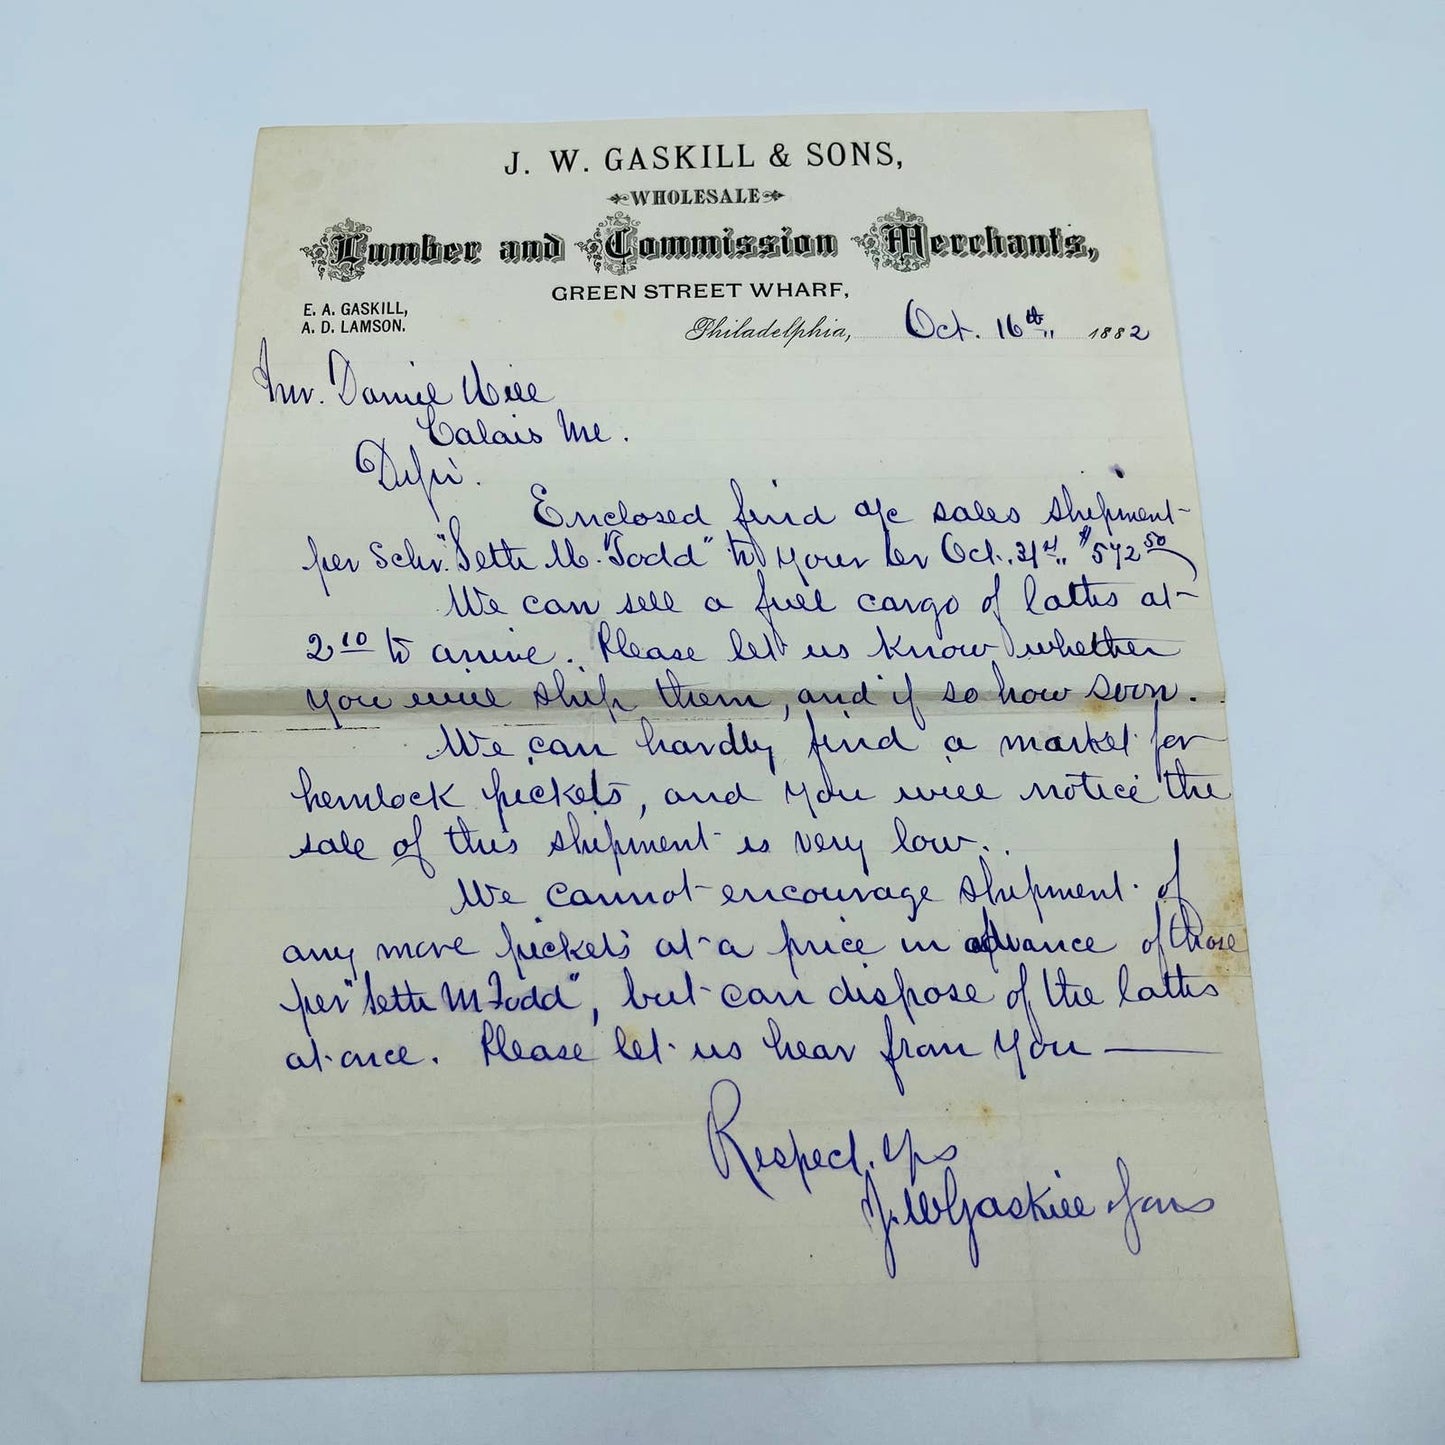 J. W. GASKILL & SONS,
WHOLESALE
Lumber and Commission Merchants,
GREEN STREET WHARF,
E. A. GASKILL,
A. D. LAMSON.
Philadelphia, Oct. 16th,, 1882
Mr. Daniel Hill
Calais Me.
Enclosed find a/c sales shipment
per Schr. "Sette M. Todd" to your cr Oct. 31st,, $572 50
We can sell a full cargo of laths at
2 10 to arrive. Please let us know whether
you will ship them, and if so how soon.
We can hardly find a market for
hemlock pickets, and you will notice the
sale of this shipment is very low.
We cannot encourage shipment of
any more pickets at a price in advance of those
per "Sette M Todd", but can dispose of the laths
at once. Please let us hear from you —
Respect. Yrs
J. W Gaskill & Sons